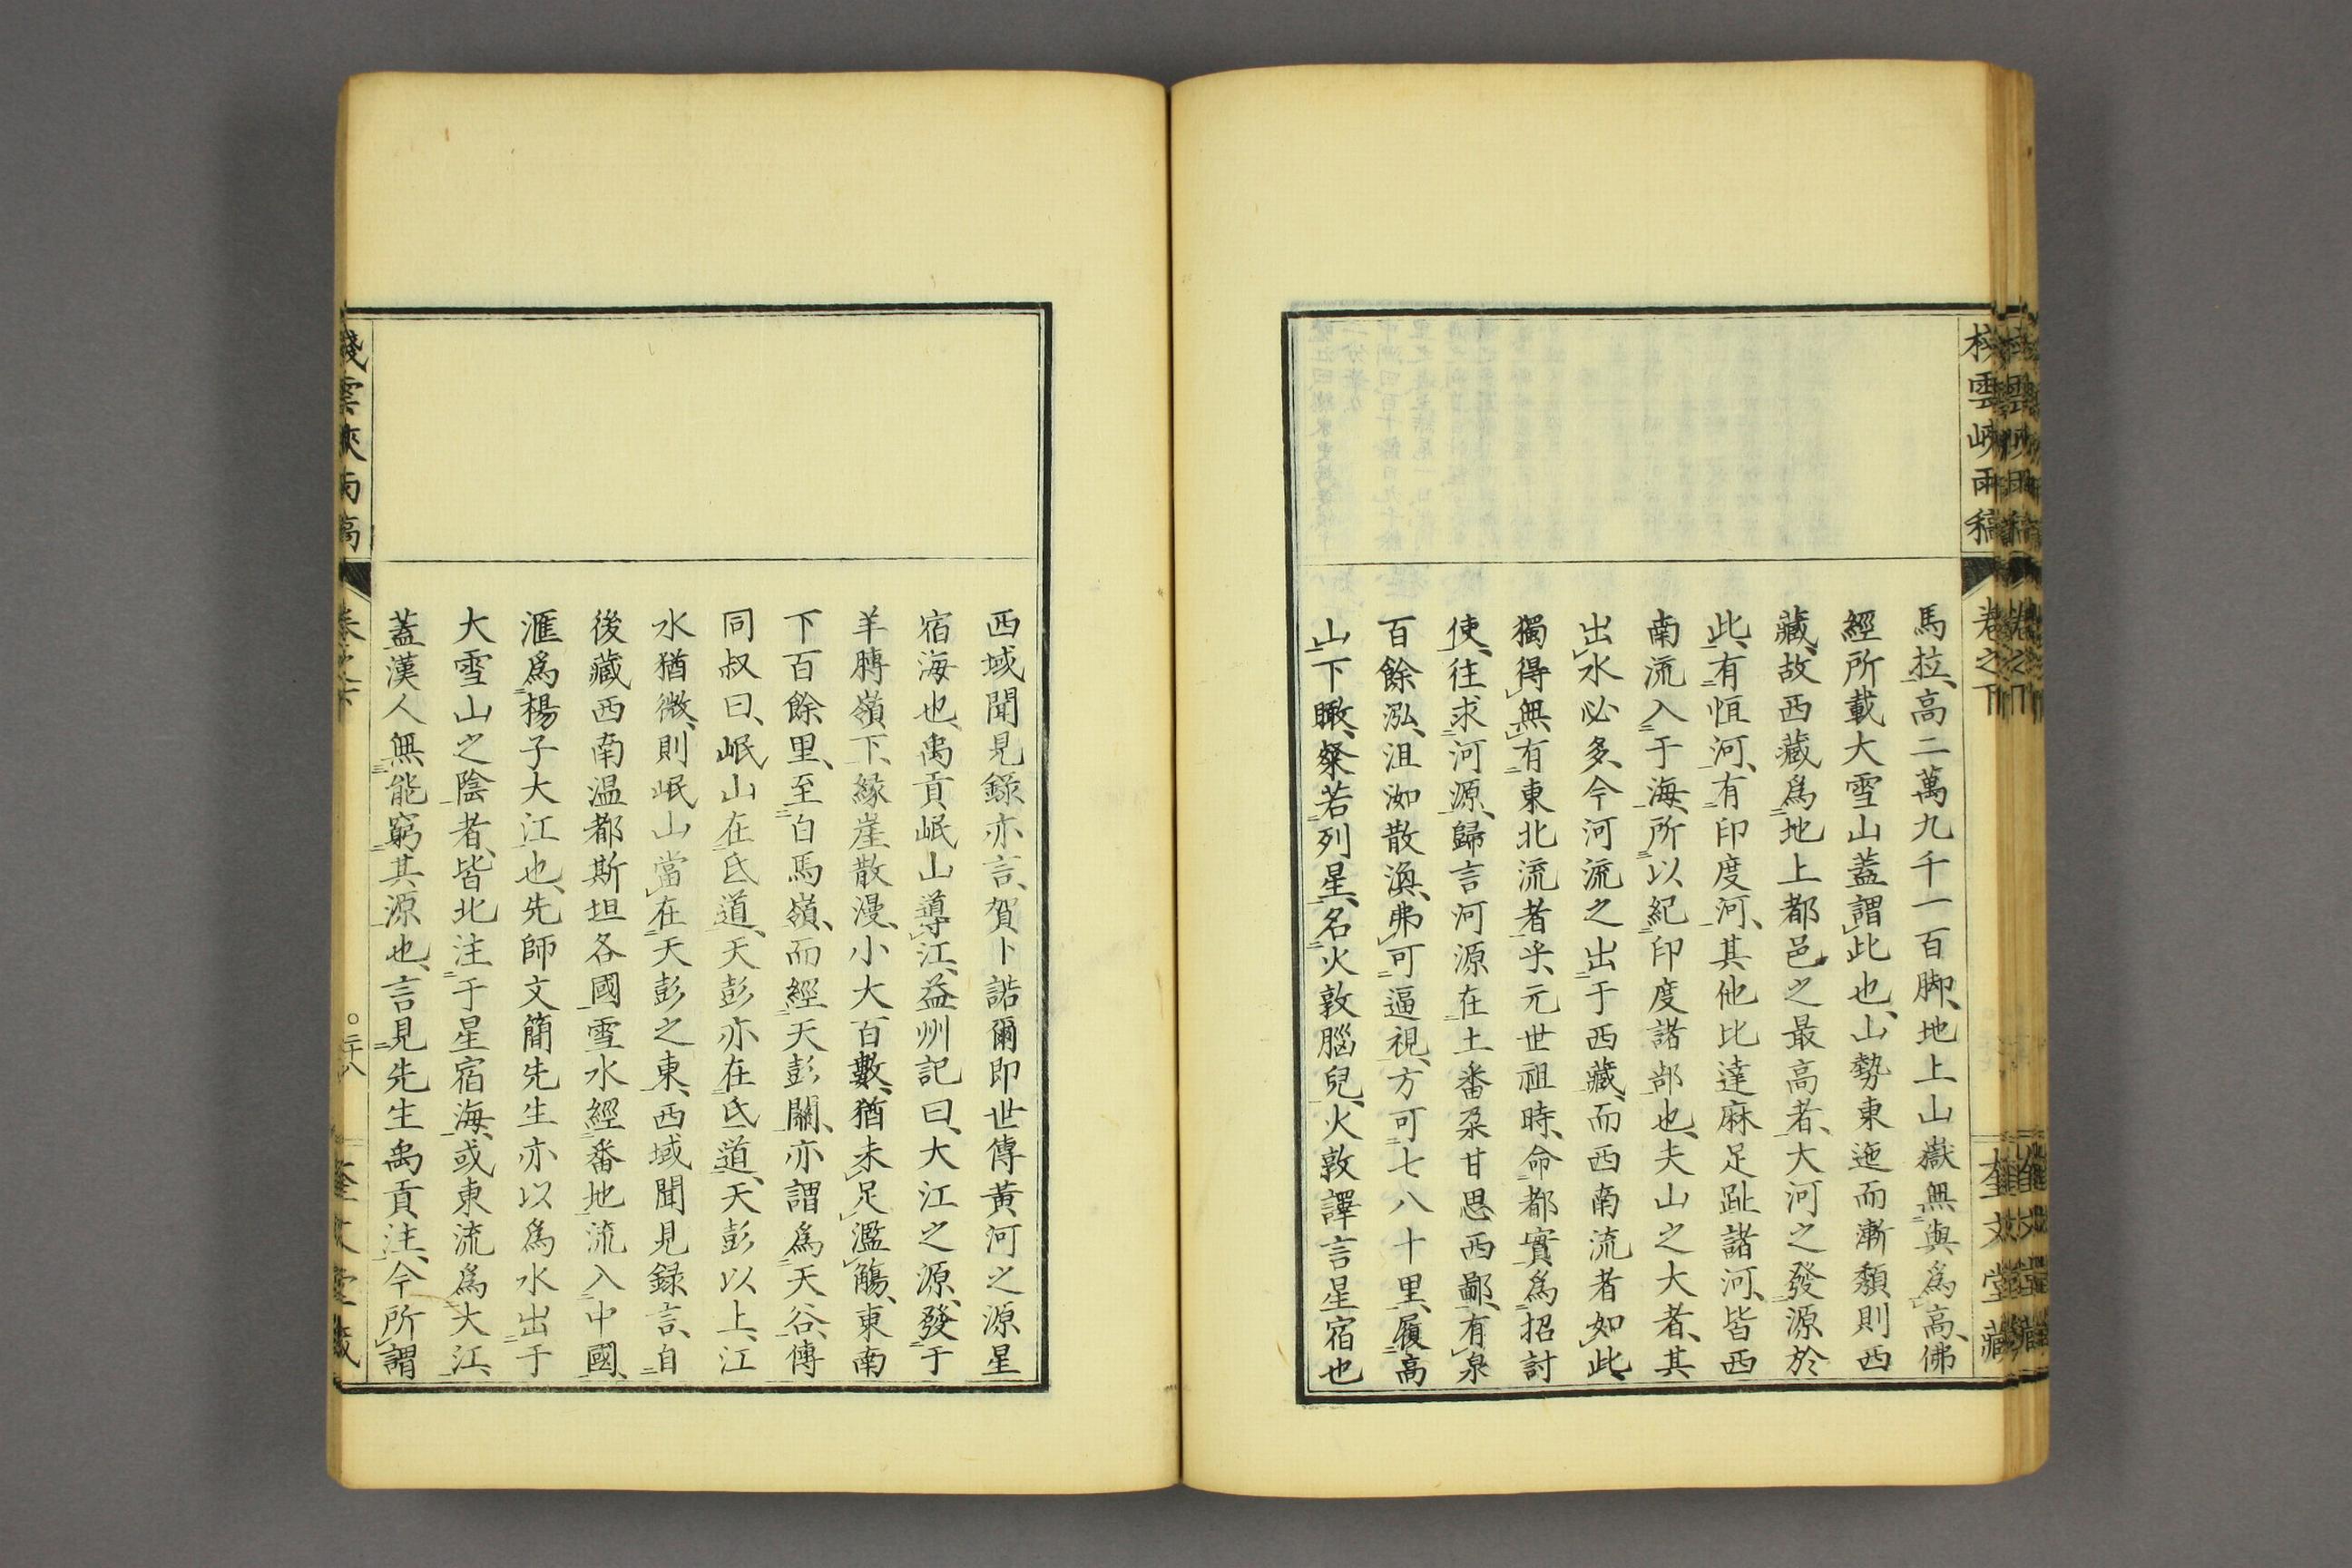 馬拉、高二萬九千一百脚、地上山嶽無與爲高、佛
經所載大雪山蓋謂此也、山勢東迤而漸頽則西
藏、故西藏爲地上都邑之最高者、大河之發源於
此、有恒河、有印度河、其他比達麻足趾諸河、皆西
南流入于海、所以紀印度諸部也、夫山之大者、其
出水必多、今河流之出于西藏、而西南流者如此、
獨得無有東北流者乎、元世祖時、命都實爲招討
使、往求河源、歸言河源在土番朶甘思西鄙、有泉
百餘泓、沮洳散渙、弗可逼視、方可七八十里、履高
山下瞰、粲若列星、名火敦腦兒、火敦譯言星宿也
棧雲峽雨稿
卷之下
奎文堂藏
西域聞見錄亦言、賀卜諾爾即世傳黃河之源星
宿海也、禹貢岷山導江、益州記曰、大江之源、發于
羊膊嶺下、緣崖散漫、小大百數、猶未足濫觴、東南
下百餘里、至白馬嶺、而經天彭闕、亦謂爲天谷、傳
同叔曰、岷山在氐道、天彭亦在氐道、天彭以上、江
水猶微、則岷山當在天彭之東、西域聞見録言、自
後藏西南温都斯坦各國雪水經番地流入中國、
滙爲楊子大江也、先師文簡先生亦以爲水出于
大雪山之陰者、皆北注于星宿海、或東流爲大江、
蓋漢人無能窮其源也、言見先生禹貢注、今所謂
棧雲峽雨稿
卷之下
〇二十八
奎文堂藏